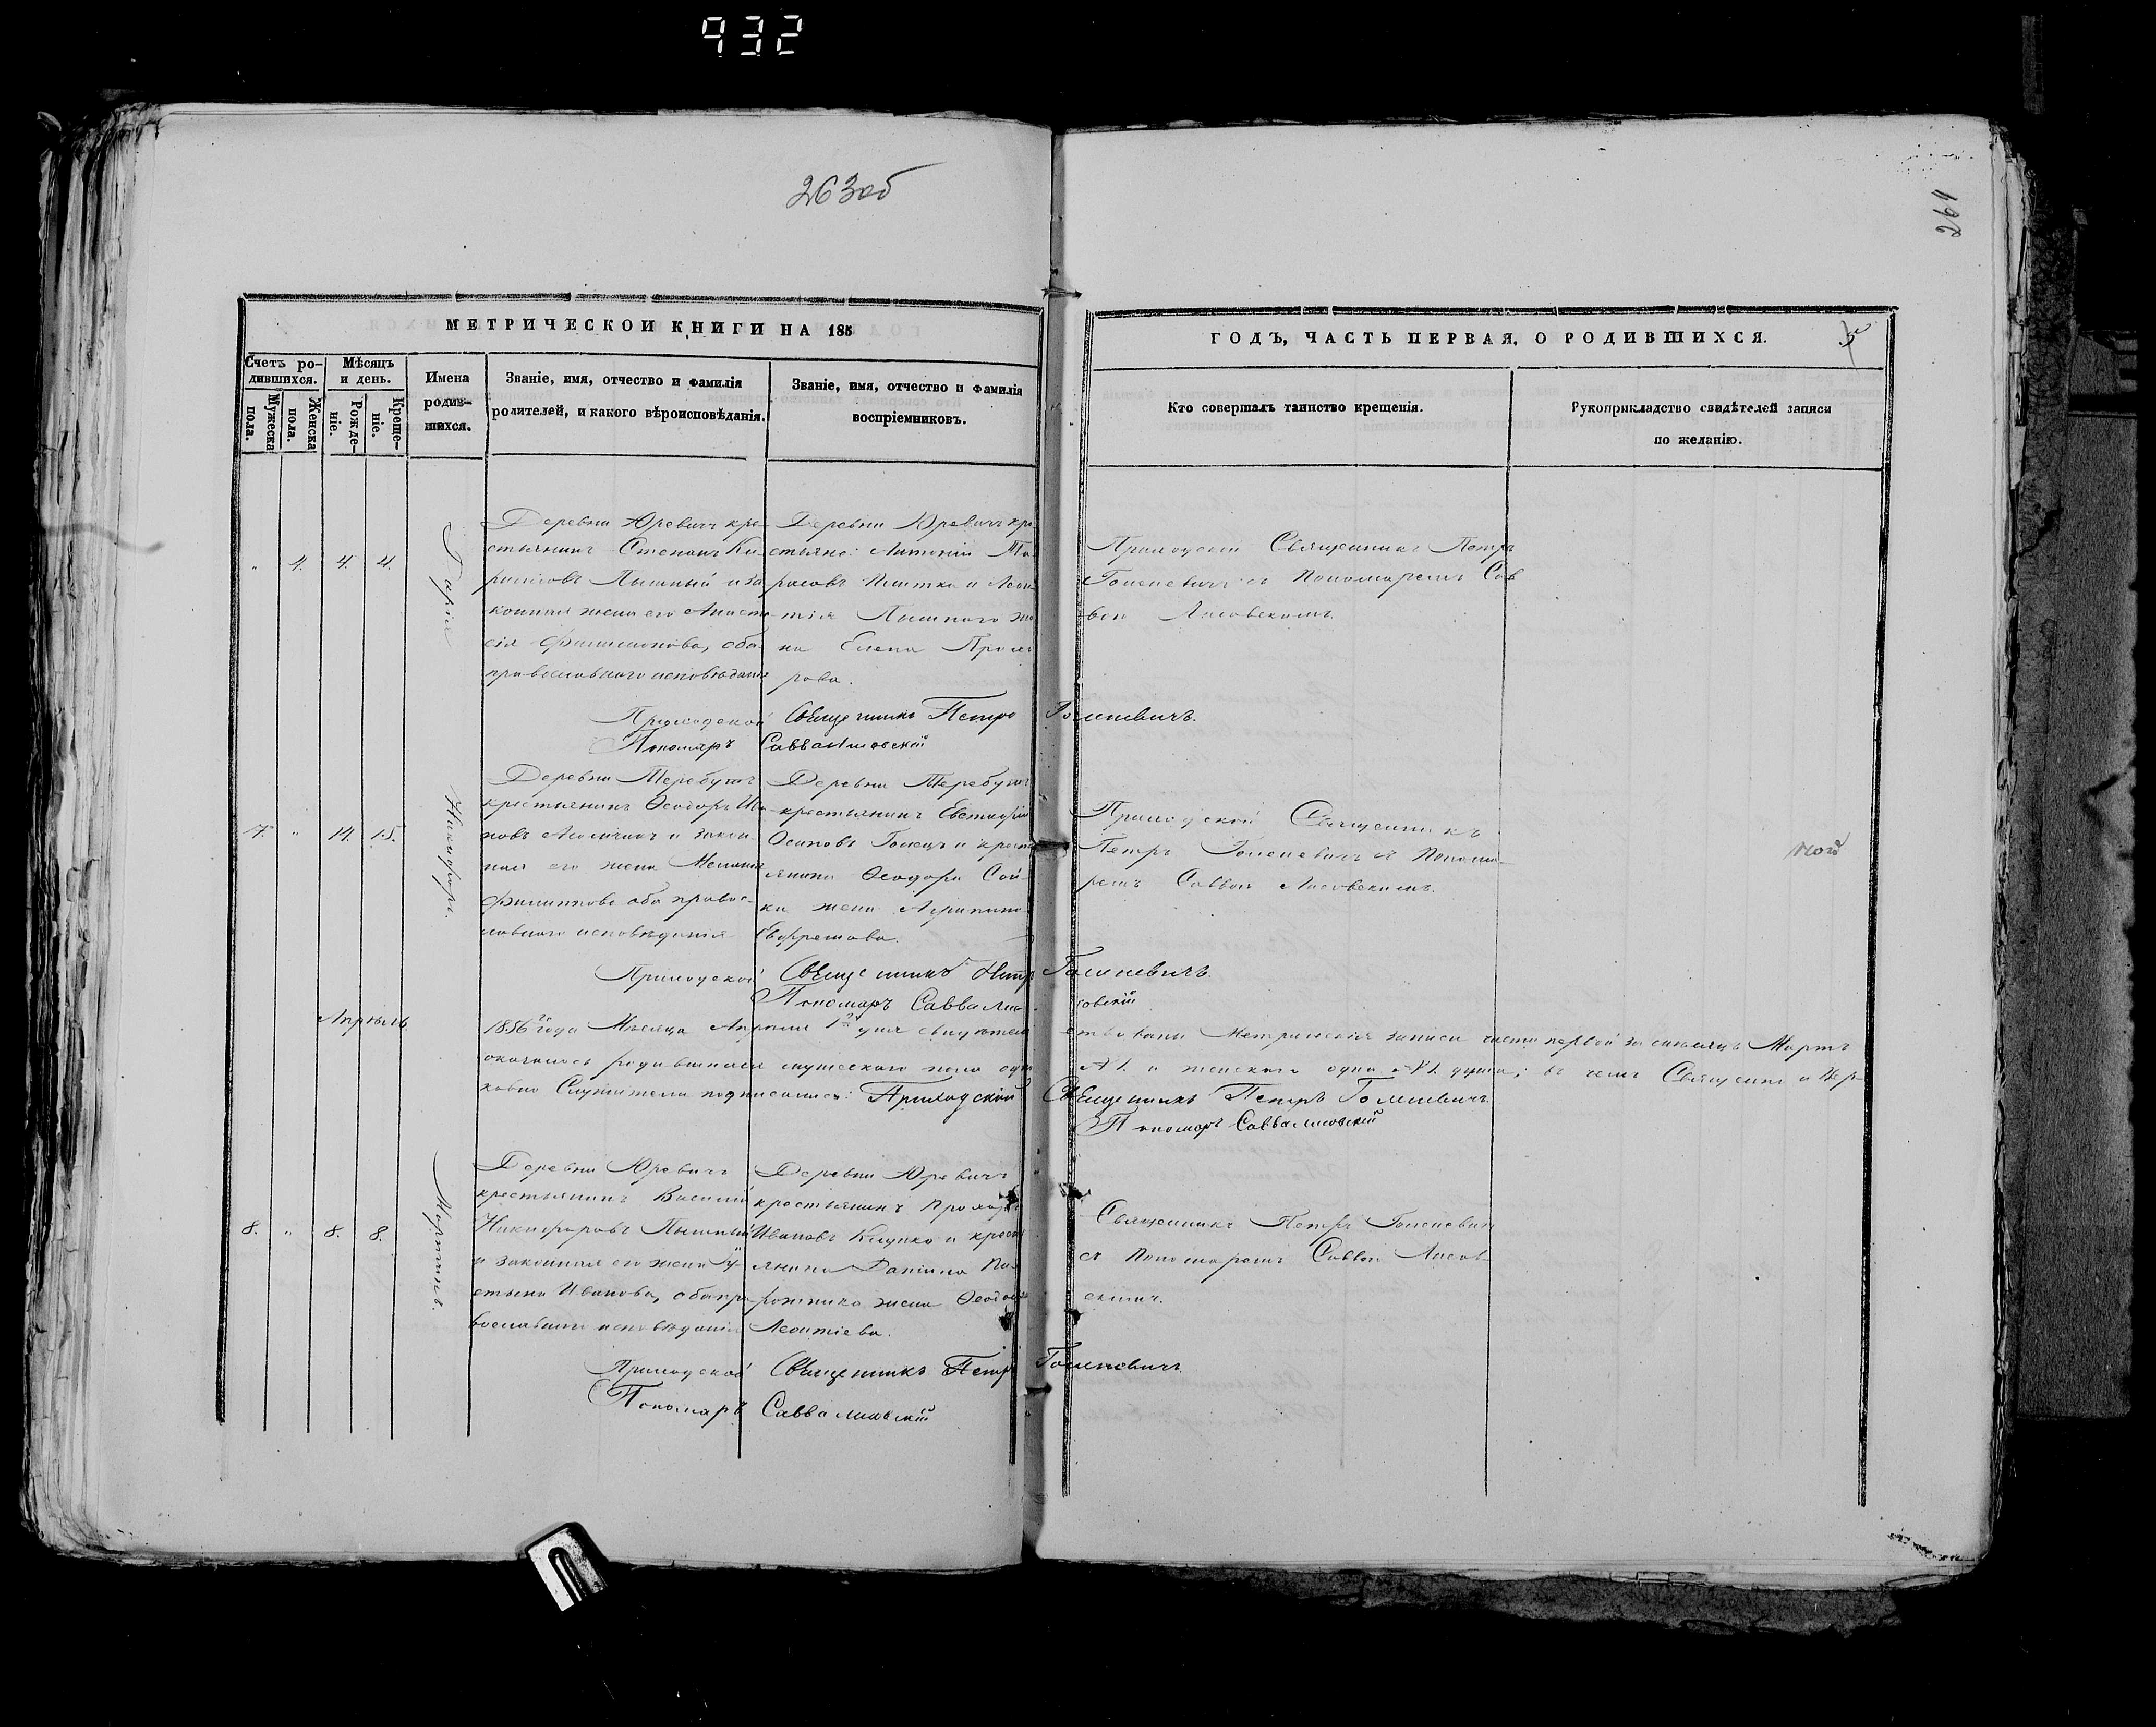 932
263 об
264
МЕТРИЧЕСКОЙ КНИГИ НА 185
Счетъ ро-
дившихся.
Мужеска
пола.
Женска
пола.
Мѣсяцъ
и день.
Рожде-
ніе.
Креще-
ніе.
Имена
родив-
шихся.
Званіе, имя, отчество и фамилія
родителей, и какого вѣроисповѣданія.
Званіе, имя, отчество и фамилія
воспріемниковъ.
ГОДЪ, ЧАСТЬ ПЕРВАЯ, О РОДИВШИХСЯ.
5
Кто совершалъ таинство крещенія.
Рукоприкладство свидѣтелей записи
по желанію.
„ 4. 4. 4.
Дарія
Деревни Юревичъ кре-
стьянинъ Степанъ
Пышный и за
конная жена его Анаста
сія Филимонова, оба
православнаго исповѣданія
Деревни Юревичъ кре
стьяне: Антоній Та
расовъ и Леон
тія Пышнаго же
на Елена Прохо
рова.
Приходской Священникъ Петръ
съ Пономаремъ Сав
вою Лисовскимъ.
Приходской Священникъ Петръ
Пономарь Савва Лисовскій
7. „ 14. 15.
Никифоръ.
Деревни Теребутъ
крестьянинъ Ѳеодоръ Ива
новъ и закон
ная его жена
Филиппова оба правос-
лавнаго исповѣданія
Деревни Теребутъ
крестьянинъ Евстафій
Осиповъ и кресть
янина Ѳеодора
ки жена Агрипина
Ефремова.
Приходской Священникъ
Петръ съ Понома-
ремъ Саввою Лисовскимъ.
Приходской Священникъ Петръ
Пономарь Савва Лисовскій
Апрѣль
1856 года Мѣсяца Апрѣля 1 дня свидѣтельствованы Метрическія записи части первой за мѣсяцъ Мартъ
оказалось родившихся мужескаго пола одна № 1. и женскаго одна № 1. душа; въ чемъ Священно и Цер-
ковно Служители подписались: Приходской Священникъ Петръ
Пономарь Савва Лисовскій
8. „ 8. 8.
Мартинъ.
Деревни Юревичъ
крестьянинъ Василій
Никифоровъ Пышный
и законная его жена Iу-
стина Иванова, оба пра
вославнаго исповѣданія
Деревни Юревичъ
крестьянинъ Прохоръ
Ивановъ и кресть
янина Даніила
жена Ѳеодосія
Леонтіева.
Священникъ Петръ
съ Пономаремъ Саввою Лисов-
скимъ.
Приходской Священникъ Петръ
Пономарь Савва Лисовскій